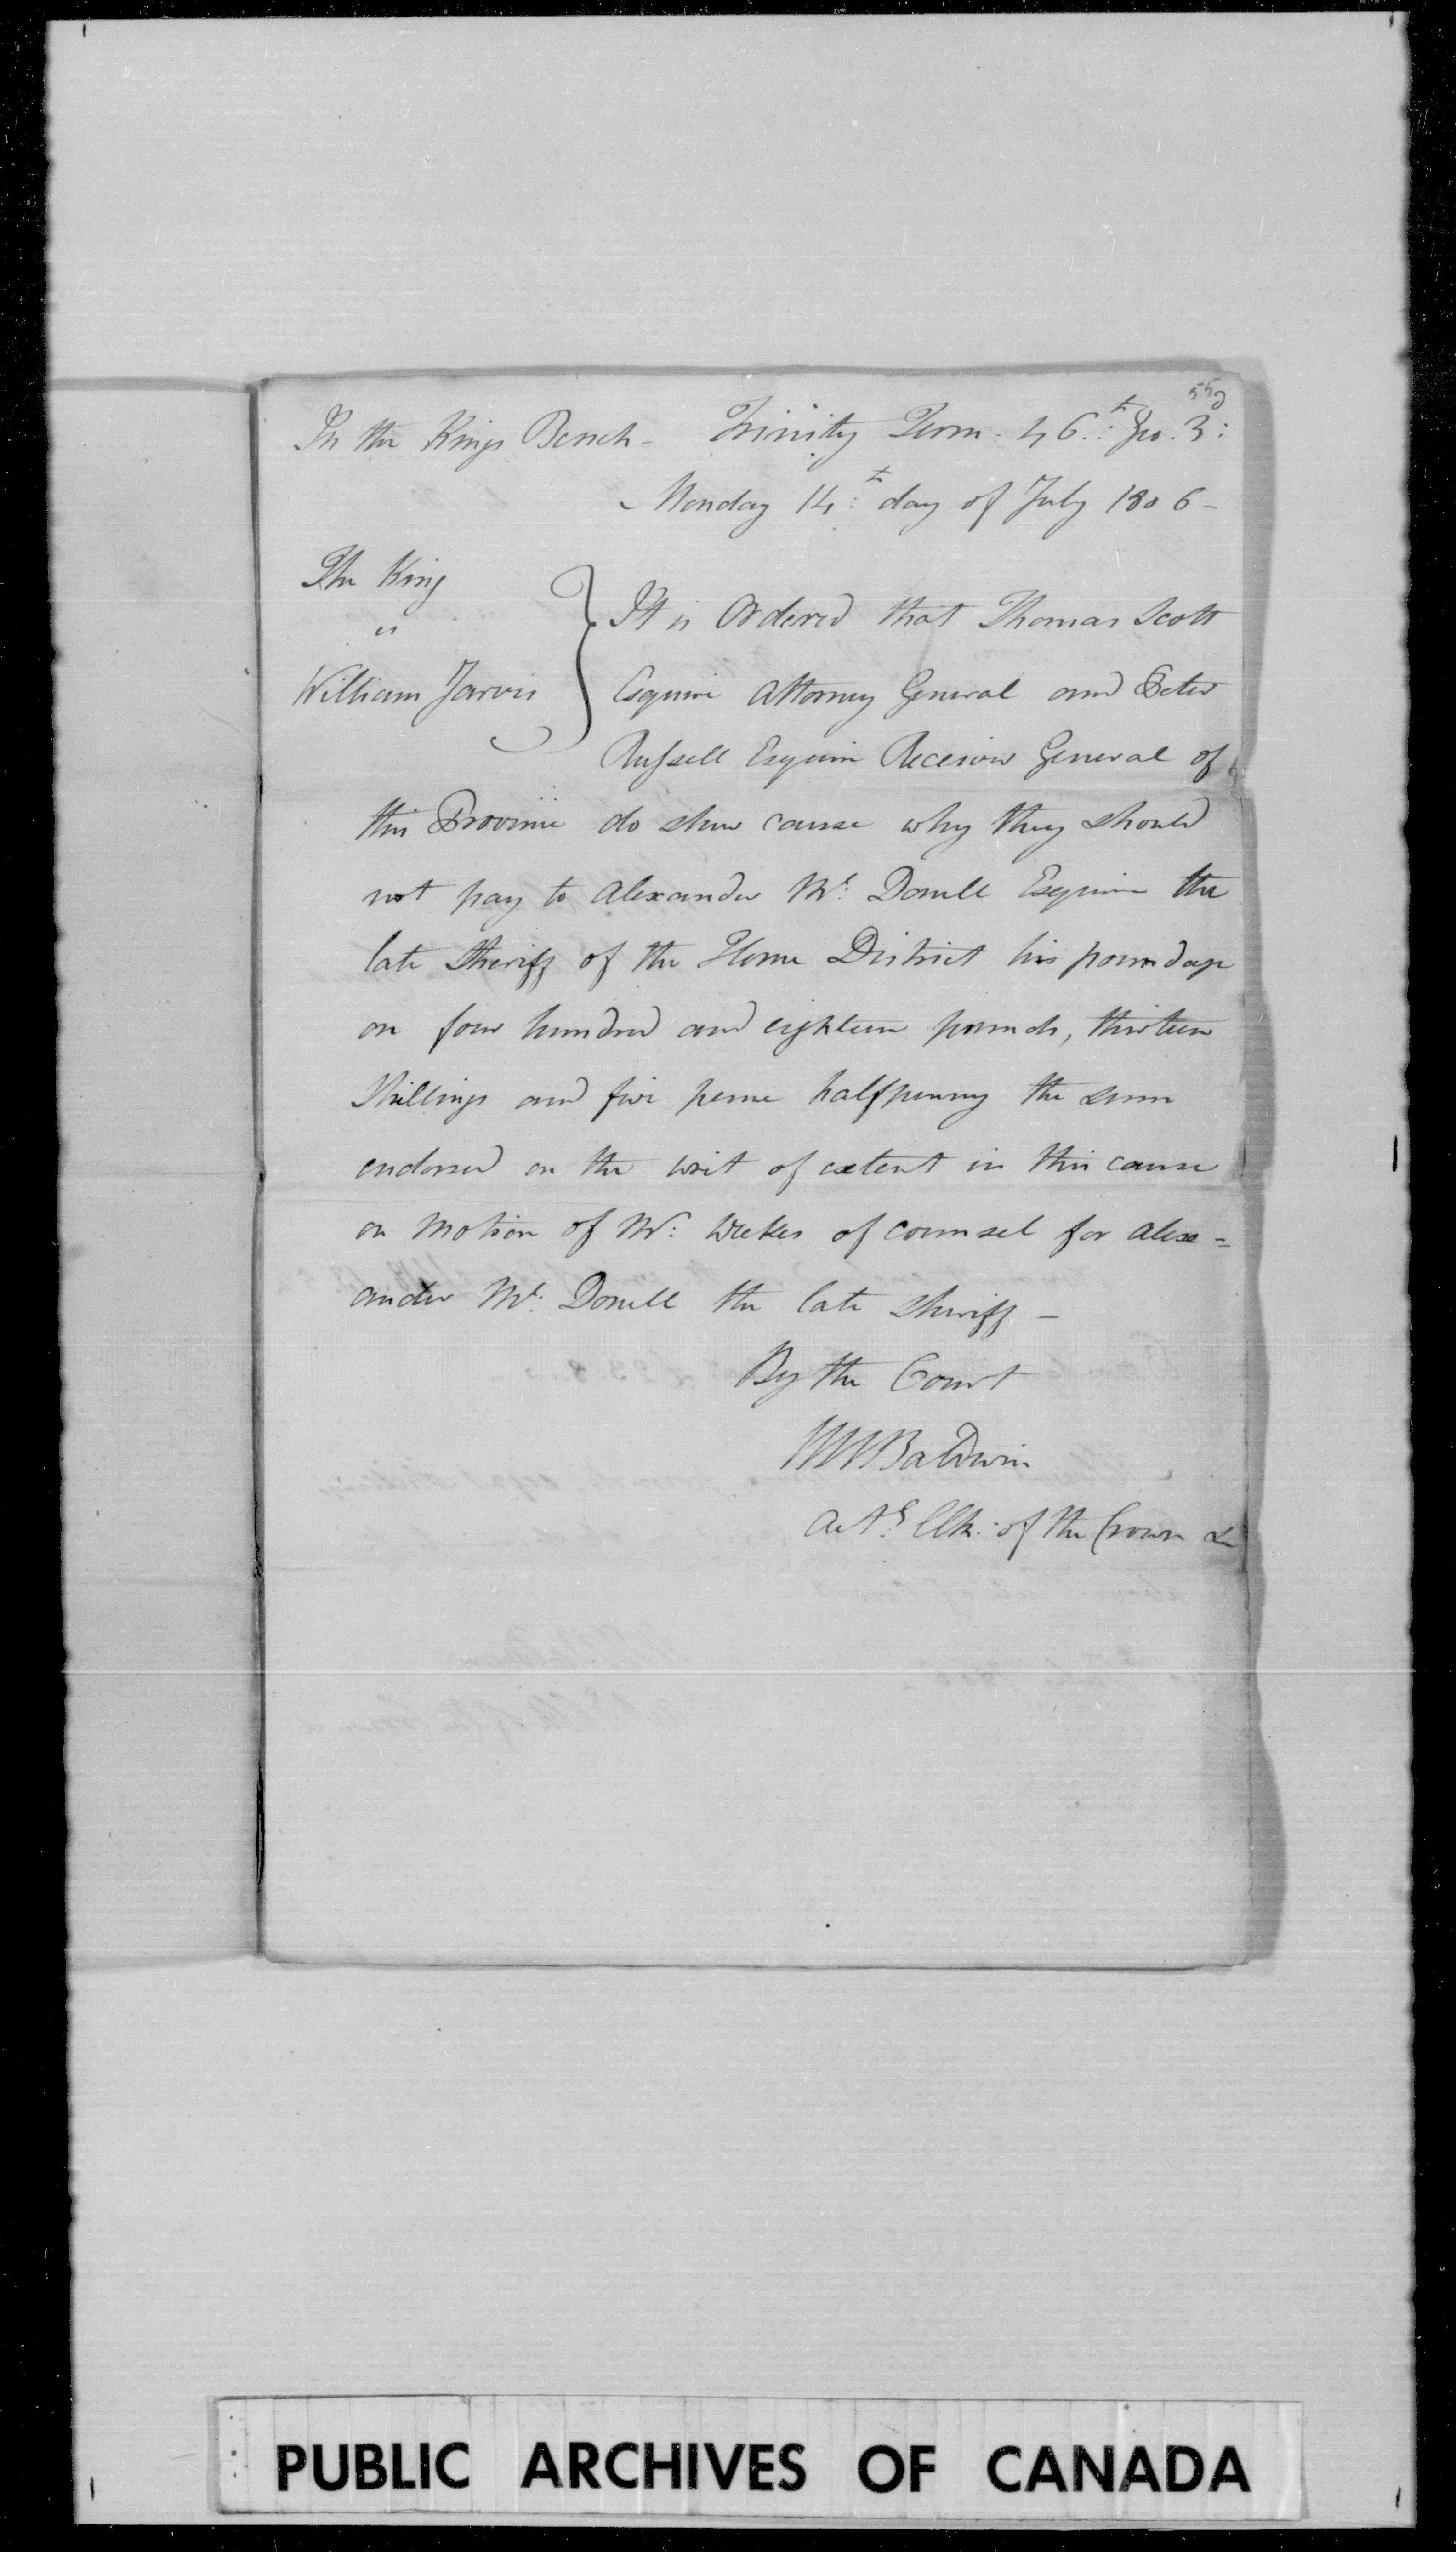 550
In the Kings Bench - Trinity Term. 46.th Geo. 3:
Monday 14:th day of July 1806 -
The King
vs
William Jarvis
It is Ordered that Thomas Scott
Esquire Attorney General and Peter
Russell Esquire Receiver General of
this Province do shew cause why they should
not pay to Alexander Mc: Donell Esquire the
late Sheriff of the Home District his poundage
on four hundred and eighteen pounds, thirteen
Shillings and five pence halfpenny the sum
endorsed on the writ of extent in this cause
on motion of Mr: Weekes of counsel for Alex=
ander Mc: Donell the late Sheriff -
By the Court
WWBaldwin
Actg. Clk: of the Crown &
PUBLIC ARCHIVES OF CANADA